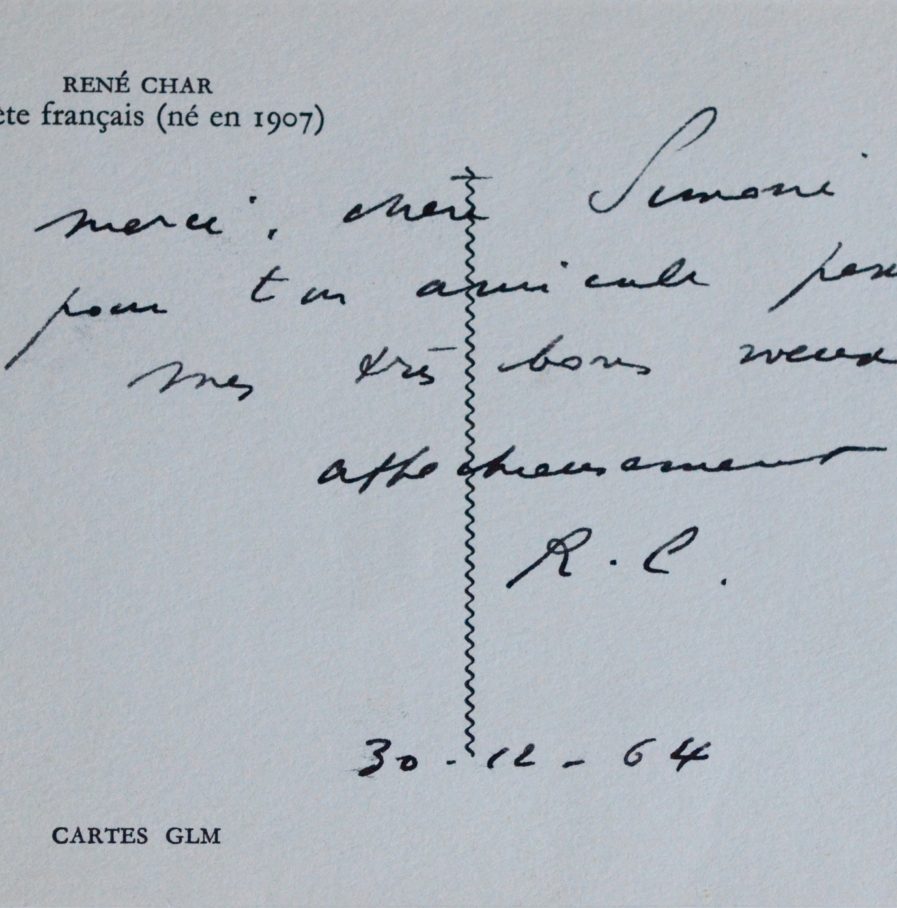 RENÉ CHAR
ète français (né en 1907)
merci, chère Simone
pour ton amicale pens
mes très bons voeux
affectueusement
R. C.
30-12-64
CARTES GLM